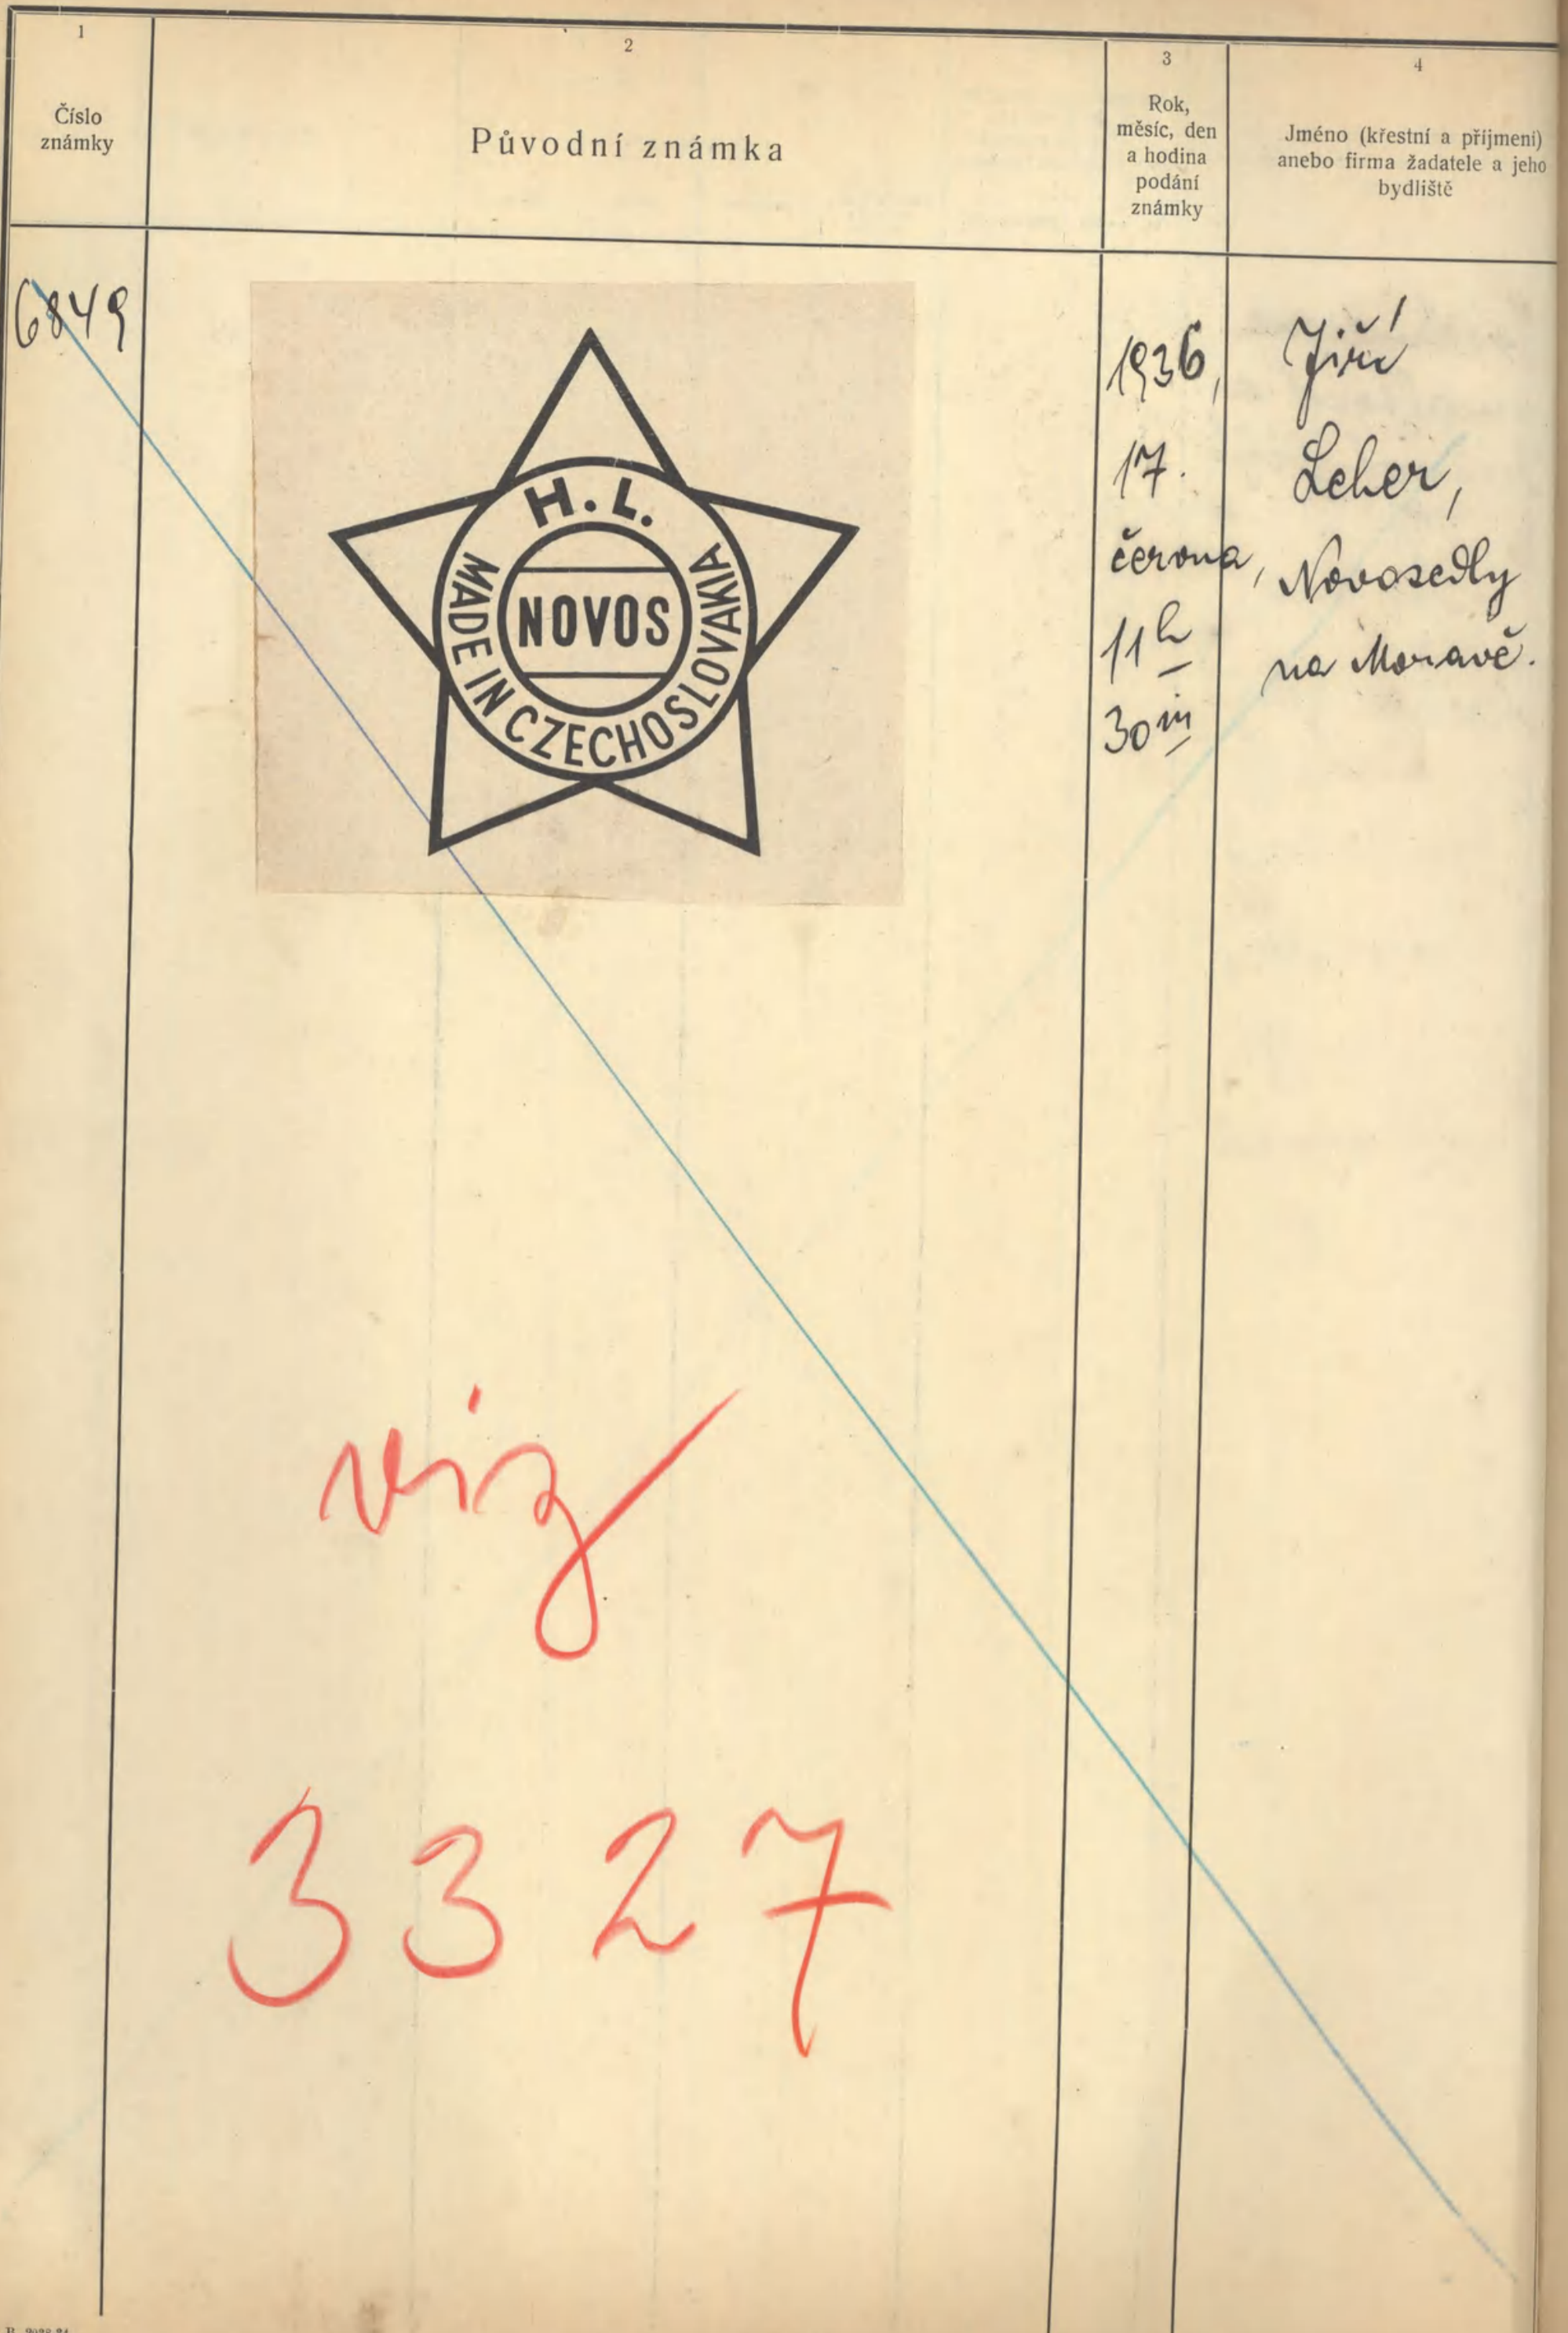 1
Číslo
známky
2
Původní známka
3
Rok,
měsíc, den
a hodina
podání
známky
4
Jméno (křestní a příjmení)
anebo firma žadatele a jeho
bydliště
6849
H. L.
NOVOS
MADE IN CZECHOSLOVAKIA
1936,
17.
června,
11h
30m
Jiří
Leher,
Novosedly
na Moravě.
viz
3327